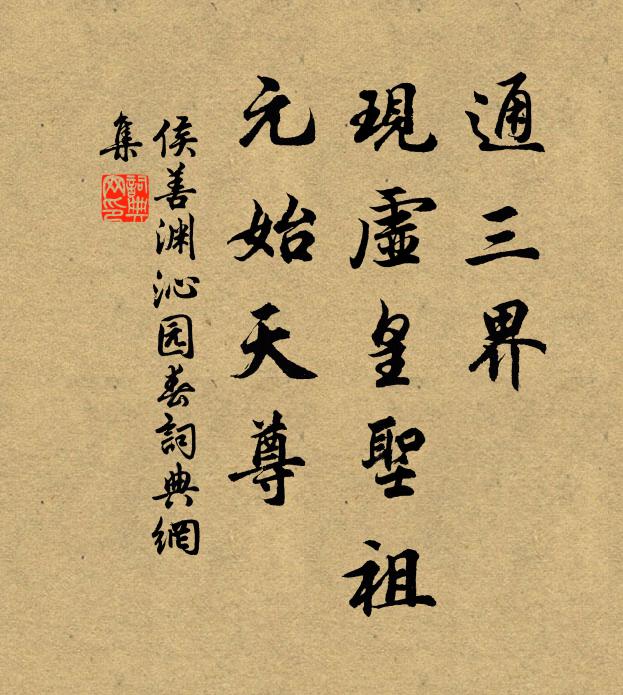 通三界
現虛皇聖祖
元始天尊
侯善渊沁园春詞典網
集
詞典
网印